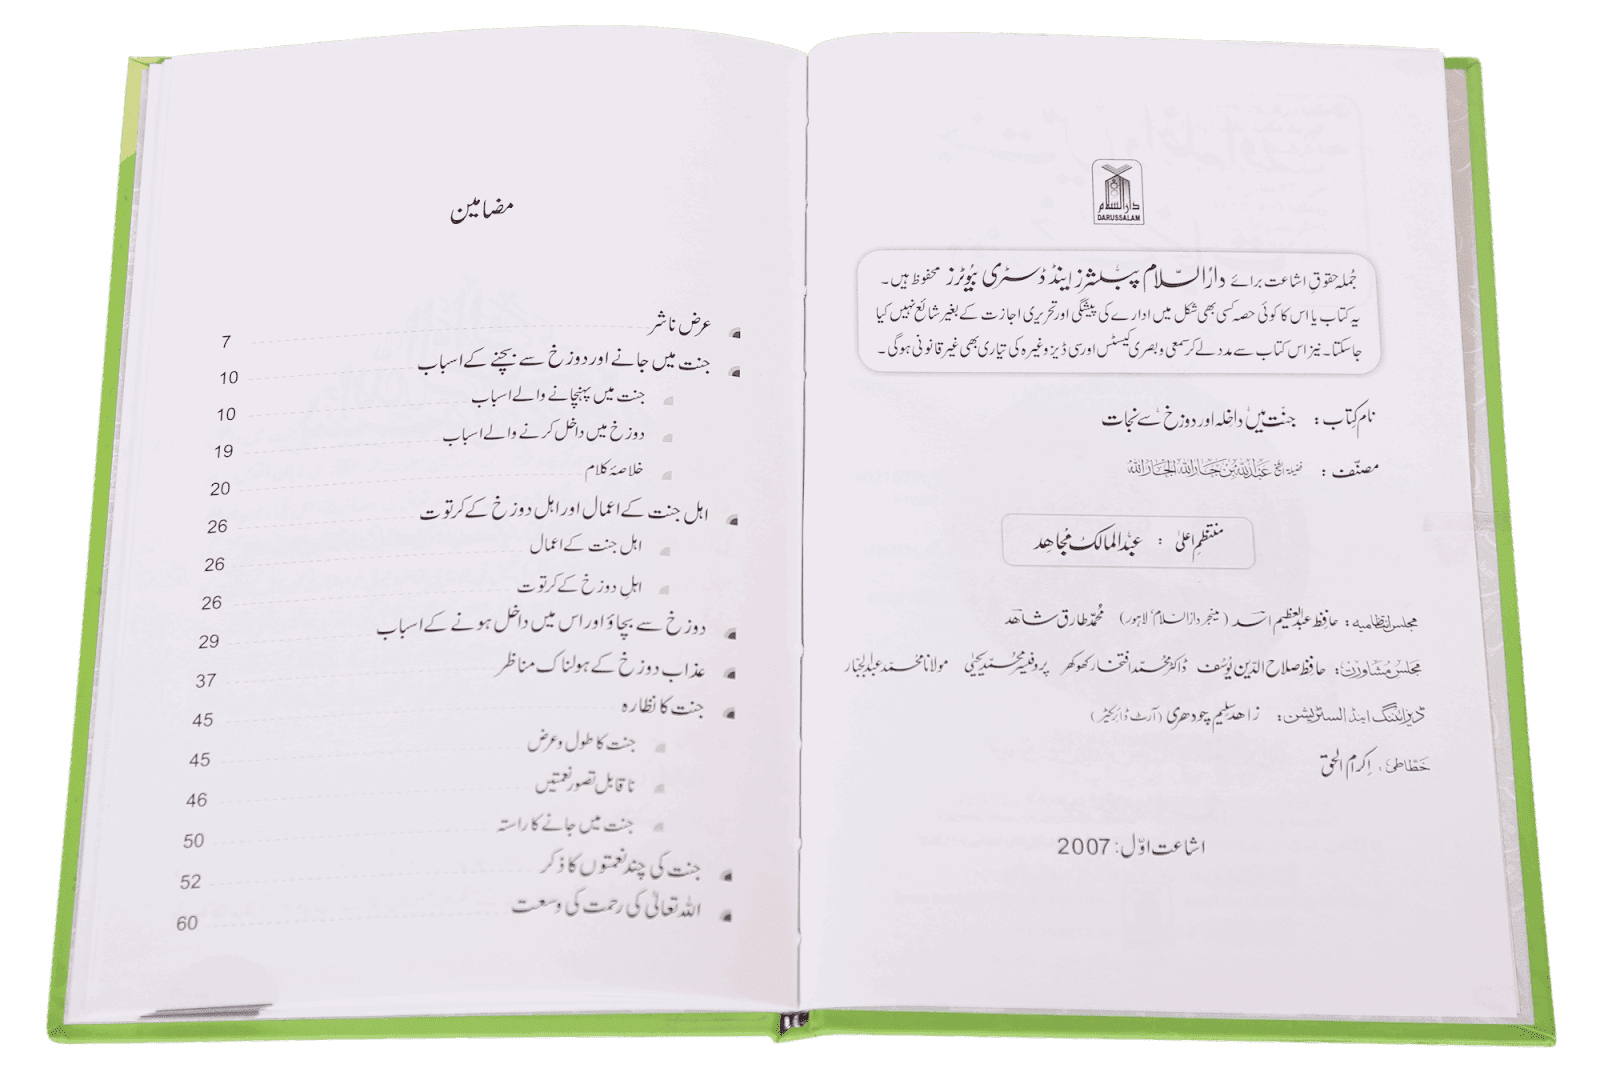 دارالسلام
DARUSSALAM
جُملہ حقوقِ اشاعت برائے دارُالسّلام پبلشرز اینڈ ڈسٹری بیُوٹرز محفوظ ہیں۔
یہ کتاب یا اس کا کوئی حصہ کسی بھی شکل میں ادارے کی پیشگی اور تحریری اجازت کے بغیر شائع نہیں کیا
جاسکتا۔ نیز اس کتاب سے مدد لے کر سمعی و بصری کیسٹس اور سی ڈیز وغیرہ کی تیاری بھی غیر قانونی ہوگی۔
نام کتاب: جنت میں داخلہ اور دوزخ سے نجات
مصنّف: فضیلۃ الشیخ عبداللہ بن جاراللہ الجاراللہ
منتظم اعلیٰ : عبدالمالک مُجاہِد
مجلس انتظامیہ: حافظ عبدالعظیم اسد (مینجر دارالسلام، لاہور) محمّد طارق شاہد
مجلس مُشاورت: حافظ صلاح الدّین یُوسف ڈاکٹر محمّد افتخار کھوکھر پروفیسر محمّد یحییٰ مولانا محمّد عبدالجبار
ڈیزائننگ اینڈ السٹریشن: زاہد سلیم چودھری (آرٹ ڈائریکٹر)
خطّاطی: اِکرام الحق
اشاعت اوّل: 2007
مضامین
عرض ناشر 7
جنت میں جانے اور دوزخ سے بچنے کے اسباب 10
جنت میں پہنچانے والے اسباب 10
دوزخ میں داخل کرنے والے اسباب 19
خلاصۂ کلام 20
اہل جنت کے اعمال اور اہل دوزخ کے کرتوت 26
اہل جنت کے اعمال 26
اہلِ دوزخ کے کرتوت 26
دوزخ سے بچاؤ اور اس میں داخل ہونے کے اسباب 29
عذاب دوزخ کے ہولناک مناظر 37
جنت کا نظارہ 45
جنت کا طول و عرض 45
ناقابل تصور نعمتیں 46
جنت میں جانے کا راستہ 50
جنت کی چند نعمتوں کا ذکر 52
اللہ تعالیٰ کی رحمت کی وسعت 60